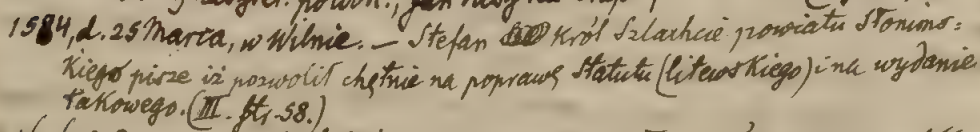 1584, d. 25 Marca, w Wilnie. — Stefan Król Szlachcie powiatu Słonims=
kiego pisze iż pozwolił chętnie na poprawę Statutu (litewskiego) i na wydanie
takowego. (III. str. 58.)